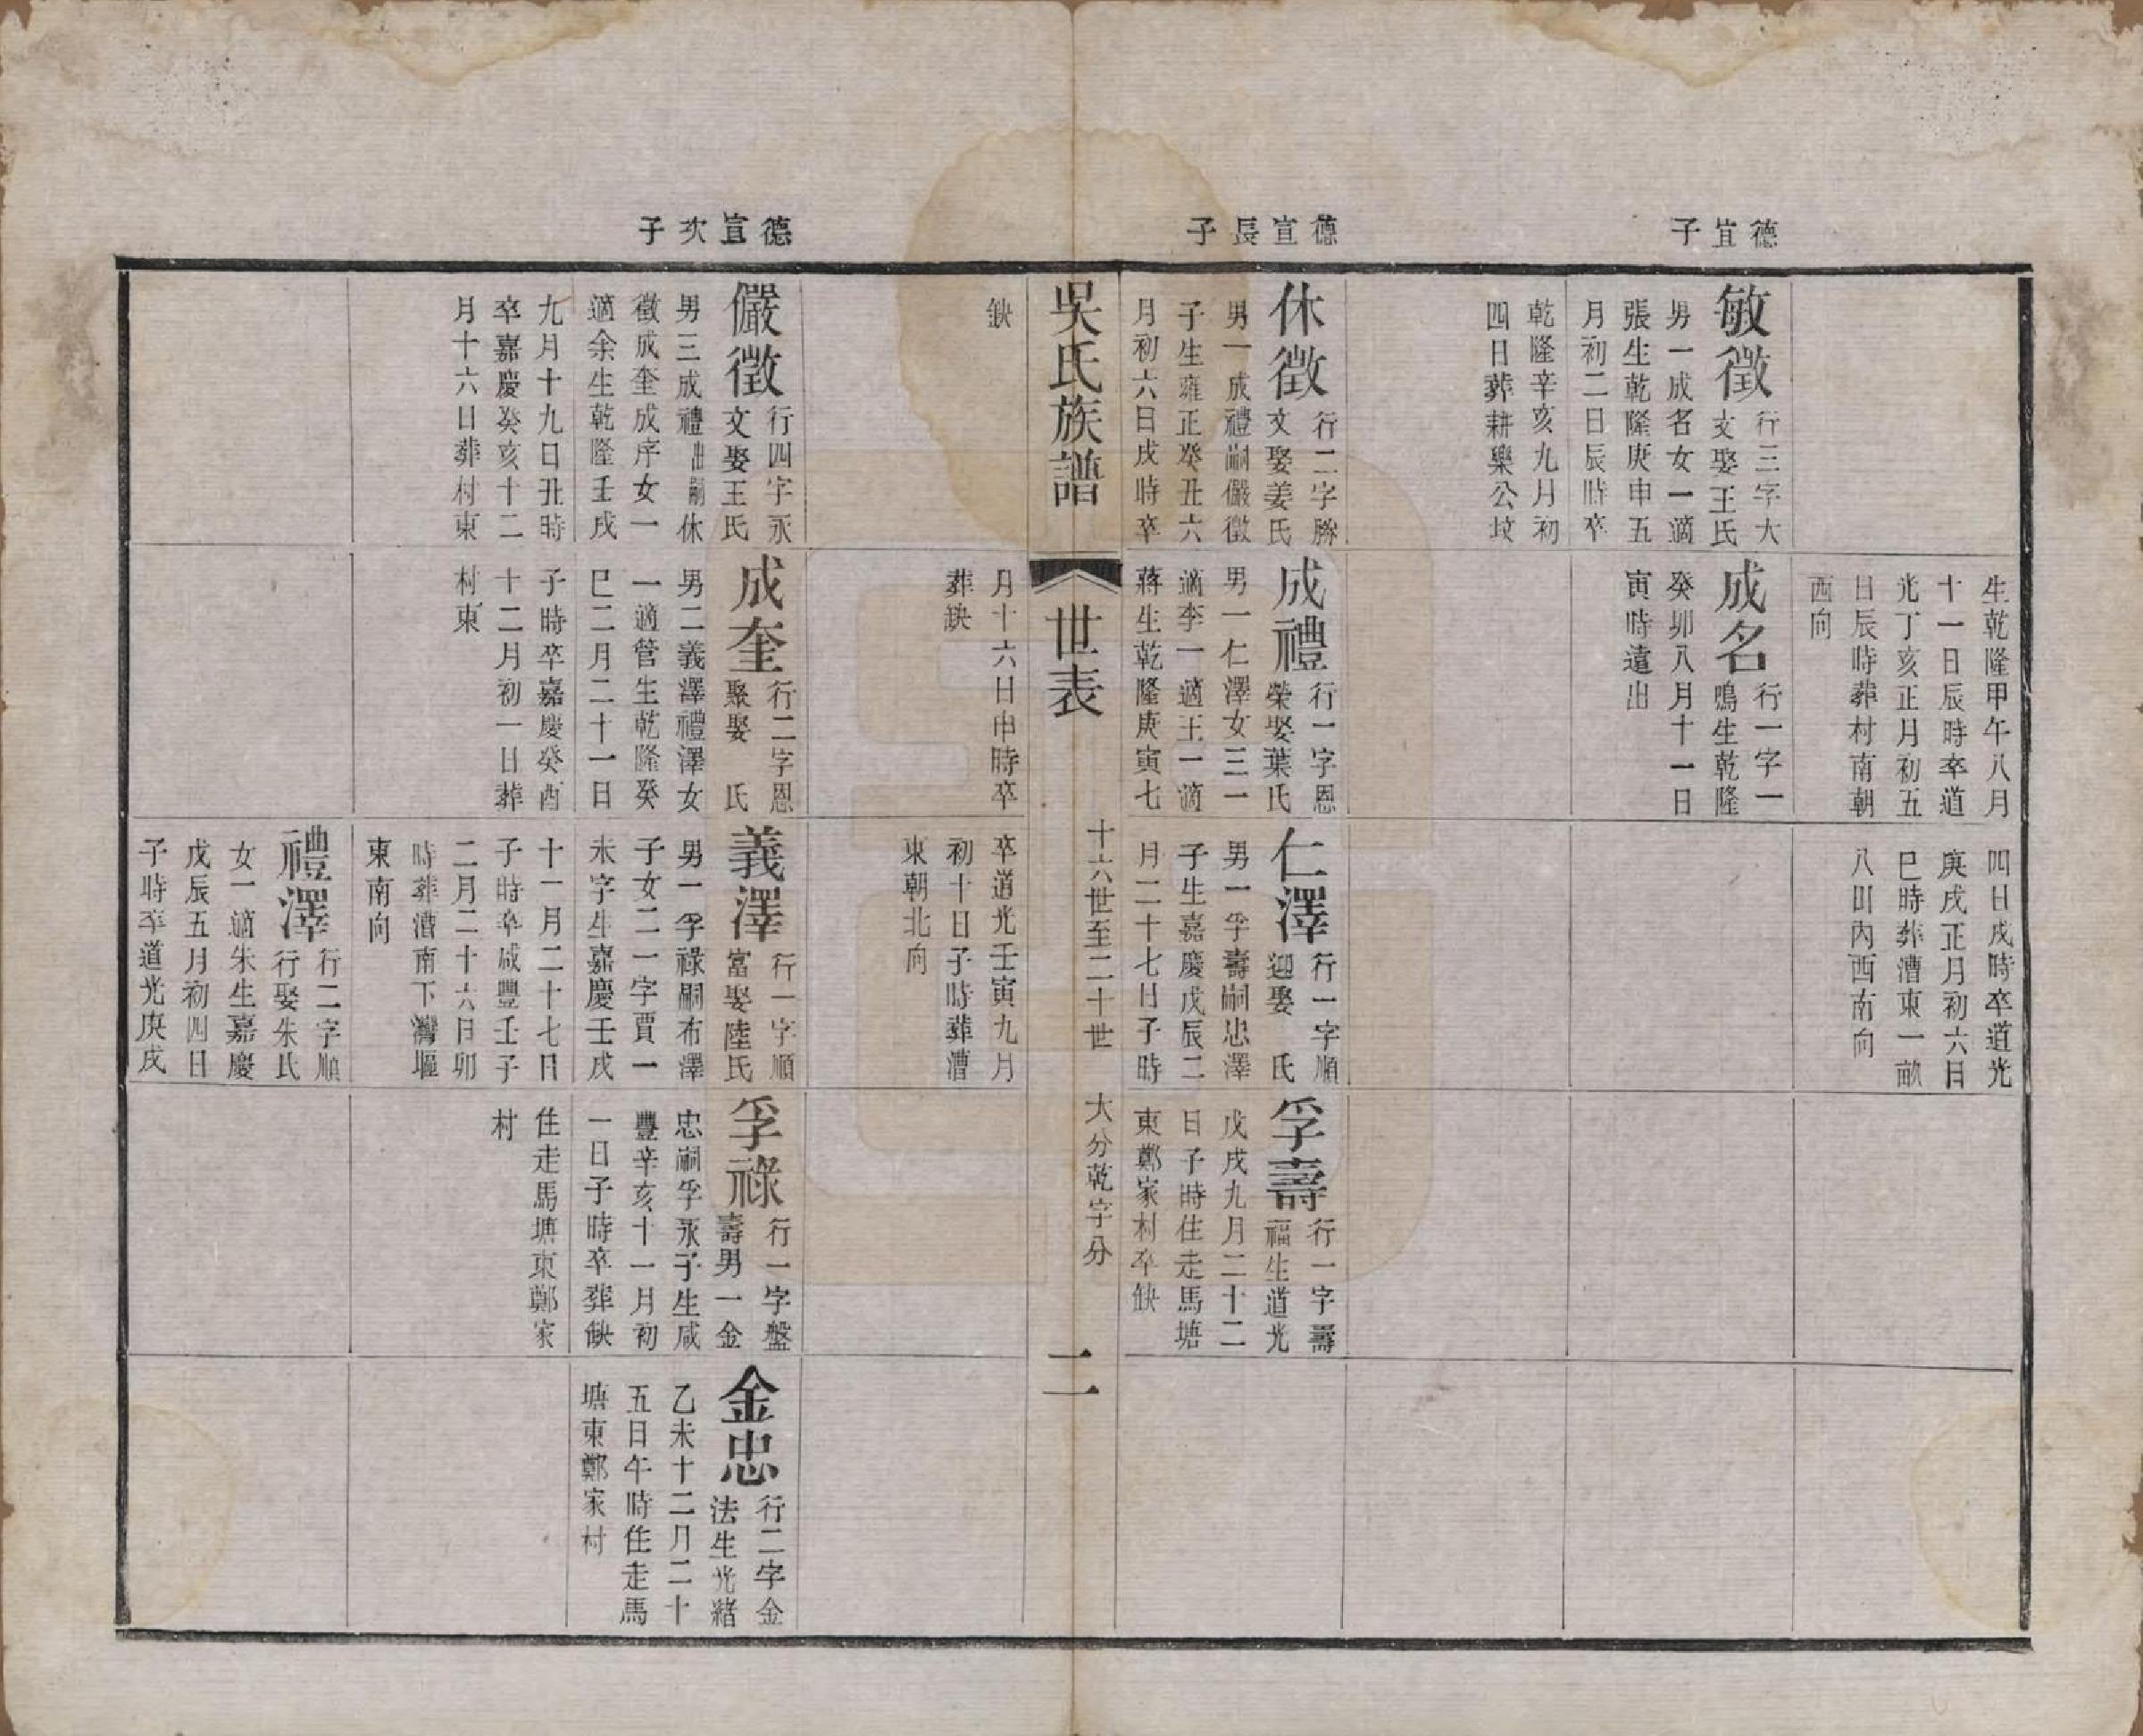 德宣子
德宣長子
德宣次子
敏徵
行三字大
文娶王氏
男一成名女一適
張生乾隆庚申五
月初二日辰時卒
乾隆辛亥九月初
四日葬耕樂公坟
休徵
行二字勝
文娶姜氏
男一成禮嗣儼徵
子生雍正癸丑六
月初六日戌時卒
生乾隆甲午八月
十一日辰時卒道
光丁亥正月初五
日辰時葬村南朝
西向
成名
行一字一
鳴生乾隆
癸卯八月十一日
寅時遠出
成禮
行一字恩
榮娶葉氏
男一仁澤女三一
適李一適王一適
蔣生乾隆庚寅七
四日戌時卒道光
庚戌正月初六日
巳時葬漕東一畝
八田內西南向
仁澤
行一字順
迎娶 氏
男一孚壽嗣忠澤
子生嘉慶戊辰二
月二十七日子時
孚壽
行一字壽
福生道光
戊戌九月二十二
日子時住走馬塘
東鄭家村卒缺
吳氏族譜
世表
十六世至二十世
大分乾字分
二
缺
儼徵
行四字永
文娶王氏
男三成禮出嗣休
徵成奎成序女一
適余生乾隆壬戌
九月十九日丑時
卒嘉慶癸亥十二
月十六日葬村東
月十六日申時卒
葬缺
成奎
行二字恩
聚娶 氏
男二義澤禮澤女
一適管生乾隆癸
巳二月二十一日
子時卒嘉慶癸酉
十二月初一日葬
村東
卒道光壬寅九月
初十日子時葬漕
東朝北向
義澤
行一字順
富娶陸氏
男一孚祿嗣布澤
子女二一字賈一
未字生嘉慶壬戌
十一月二十七日
子時卒咸豐壬子
二月二十六日卯
時葬漕南下灣堰
東南向
禮澤
行二字順
行娶朱氏
女一適朱生嘉慶
戊辰五月初四日
子時卒道光庚戌
孚祿
行一字盤
壽男一金
忠嗣孚永子生咸
豐辛亥十一月初
一日子時卒葬缺
住走馬塘東鄭家
村
金忠
行二字金
法生光緒
乙未十二月二十
五日午時住走馬
塘東鄭家村